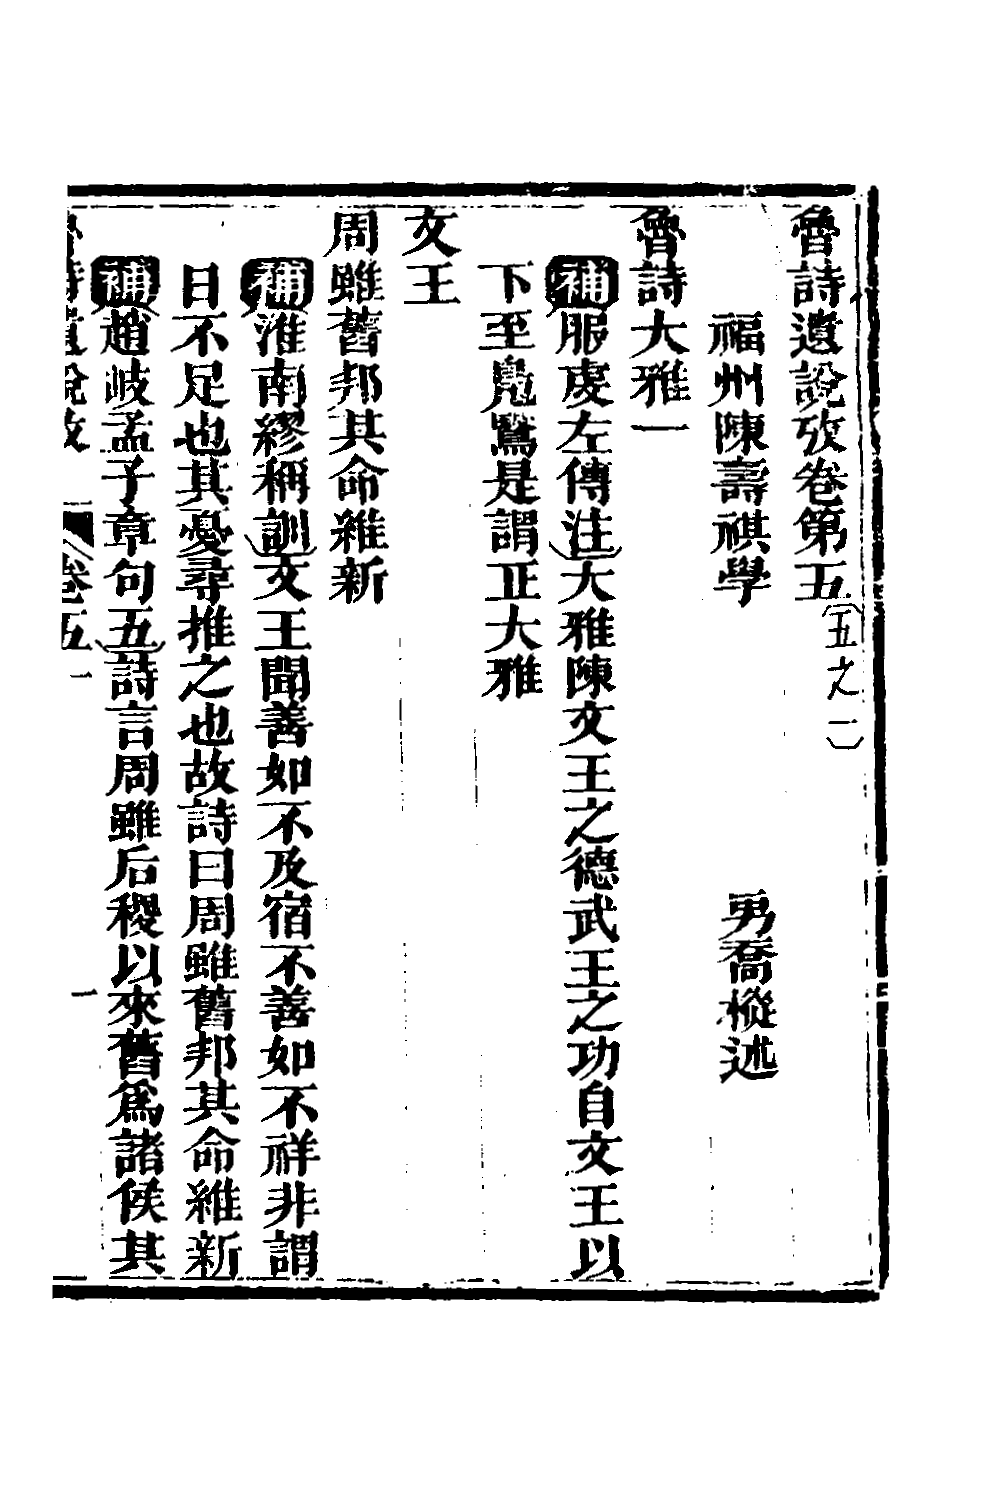 魯詩遺說攷卷第五
五之一
福州陳壽祺學　男喬樅述
魯詩大雅一
補服虔左傳注大雅陳文王之德武王之功自文王以
下至鳧鷖是謂正大雅
文王
周雖舊邦其命維新
補淮南繆稱訓文王聞善如不及宿不善如不祥非謂
日不足也其憂尋推之也故詩曰周雖舊邦其命維新
補趙岐孟子章句五詩言周雖后稷以來舊爲諸侯其
魯詩遺說攷　卷五　一　一